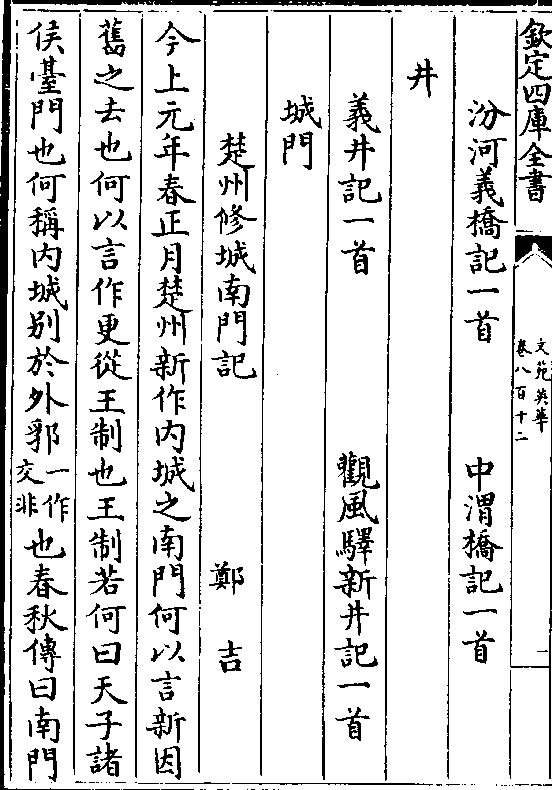 欽定四庫全書
文苑英華
卷八百十二
一
汾河義橋記一首 中渭橋記一首
井
義井記一首 觀風驛新井記一首
城門
楚州修城南門記 鄭吉
今上元年春正月楚州新作内城之南門何以言新因
舊之去也何以言作更從王制也王制若何曰天子諸
侯臺門也何稱内城别於外郛一作交非也春秋傳曰南門